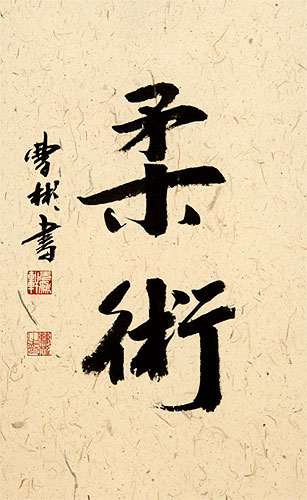 柔術
曹彬書